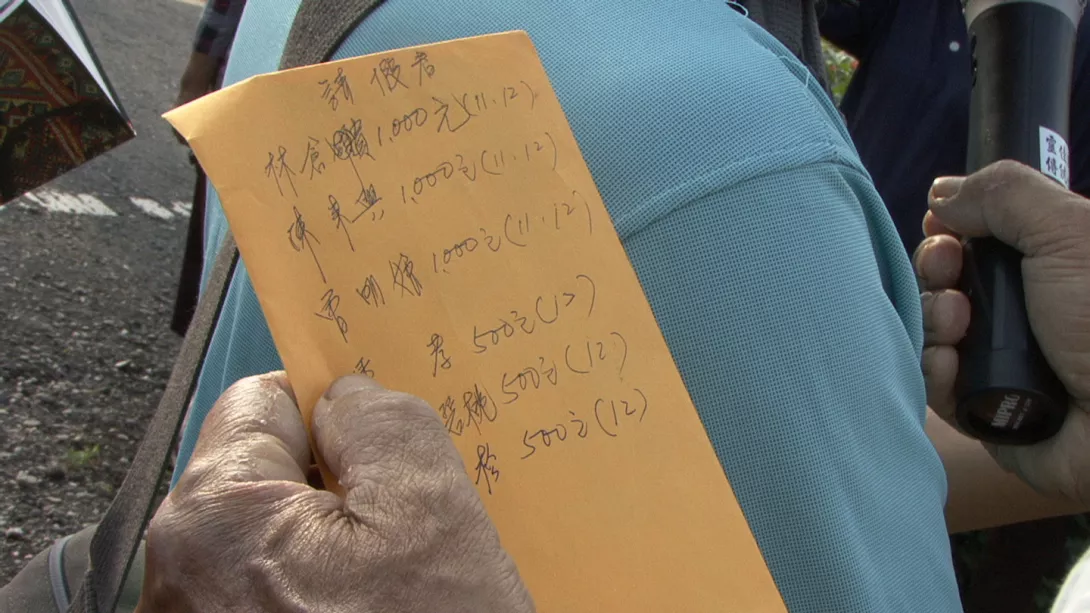 請假者
林倉 1.000元(11.12)
陳来興 1.000元(11.12)
曾明 1.000元(11.12)
孝 500元(12)
桃 500元(12)
松 500元(12)
MIPRO